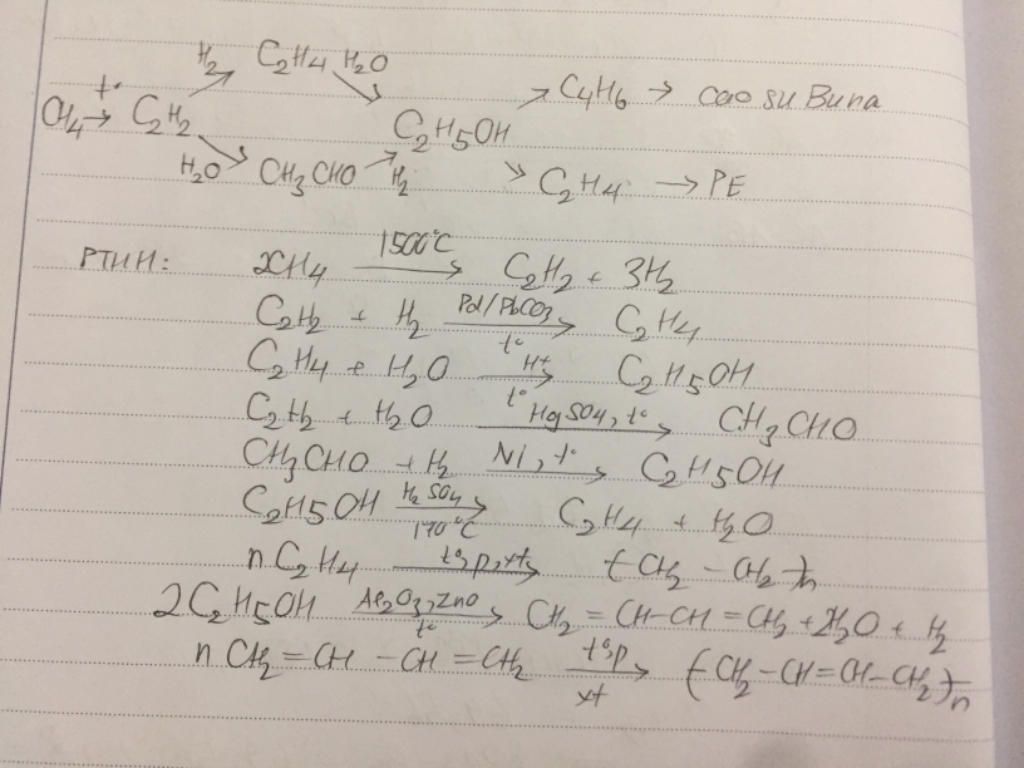 H₂ C₂H₄ H₂O
CH₄ →(t°) C₂H₂ ↗ ↘ C₂H₅OH ↗ C₄H₆ → cao su Buna
H₂O ↘ CH₃CHO ↗ H₂ ↘ C₂H₄ → PE
PTHH: 2CH₄ →(1500°C) C₂H₂ + 3H₂
C₂H₂ + H₂ →(Pd/PbCO₃, t°) C₂H₄
C₂H₄ + H₂O →(H+, t°) C₂H₅OH
C₂H₂ + H₂O →(HgSO₄, t°) CH₃CHO
CH₃CHO + H₂ →(Ni, t°) C₂H₅OH
C₂H₅OH →(H₂SO₄, 170°C) C₂H₄ + H₂O
nC₂H₄ →(t°, p, xt) (CH₂ - CH₂)n
2C₂H₅OH →(Al₂O₃, ZnO, t°) CH₂ = CH-CH = CH₂ + 2H₂O + H₂
n CH₂ = CH - CH = CH₂ →(t°, p, xt) (CH₂ - CH = CH - CH₂)n